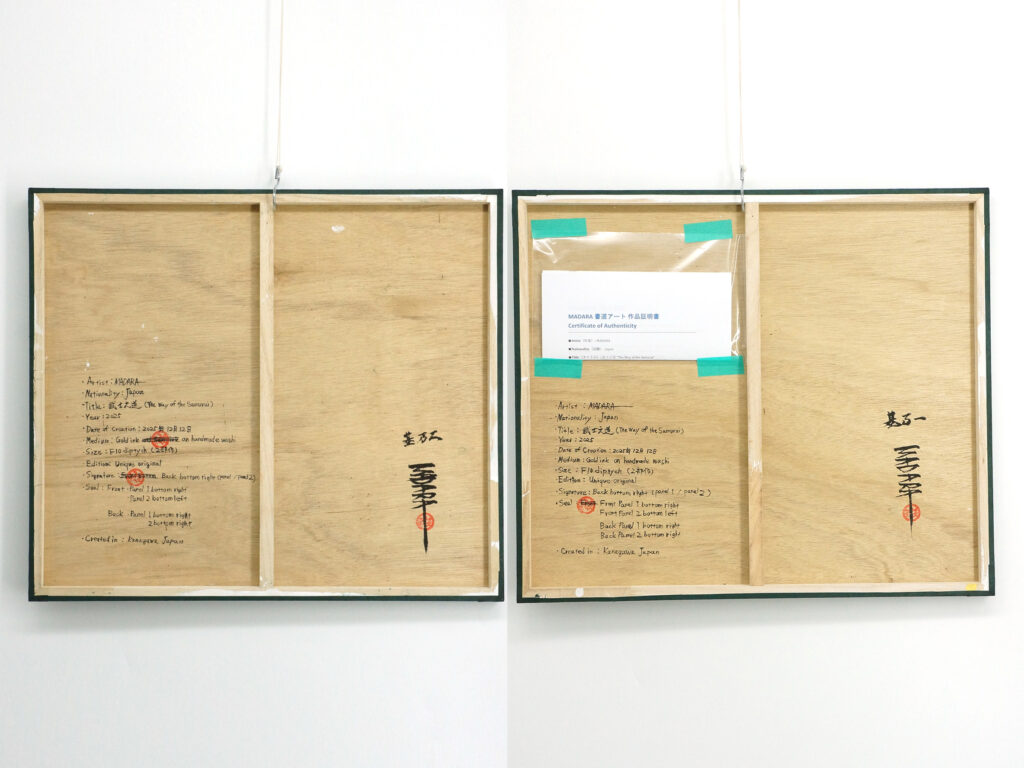 ・Artist : MADARA
・Nationality : Japan
・Title : 武士之道 (The Way of the Samurai)
・Year : 2025
・Date of Creation : 2025年12月12日
・Medium : Gold ink on handmade washi
・Size : F10 diptych (2枚組)
・Edition : Unique original
・Signature : Back bottom right (panel 1 / panel 2)
・Seal : Front : Panel 1 bottom right
Panel 2 bottom left
Back : Panel 1 bottom right
2 bottom right
・Created in : Kanagawa Japan
MADARA
MADARA 書道アート 作品証明書
Certificate of Authenticity
■Artist (作家) : MADARA
■Nationality (国籍) : Japan
■Title "The Way of the Samurai"
・Artist : MADARA
・Nationality : Japan
・Title : 武士之道 (The Way of the Samurai)
・Year : 2025
・Date of Creation : 2025年12月12日
・Medium : Gold ink on handmade washi
・Size : F10 diptych (2枚組)
・Edition : Unique original
・Signature : Back bottom right (panel 1 / panel 2)
・Seal Front Panel 1 bottom right
Front Panel 2 bottom left
Back Panel 1 bottom right
Back Panel 2 bottom right
・Created in : Kanagawa Japan
MADARA